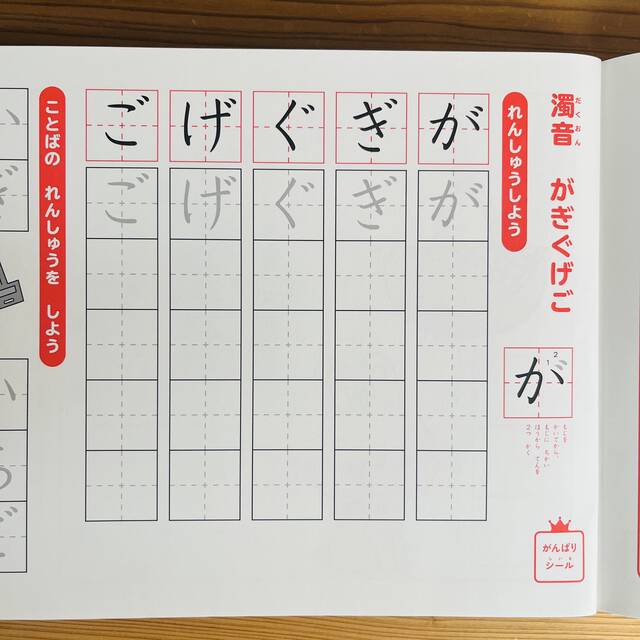 濁音 がぎぐげご
だくおん
が
1
2
もじを
かいてから、
もじに ちかい
ほうから てんを
2つ かく
がんばり
シール
しいる
れんしゅうしよう
が
が
ぎ
ぎ
ぐ
ぐ
げ
げ
ご
ご
ことばの れんしゅうを しよう